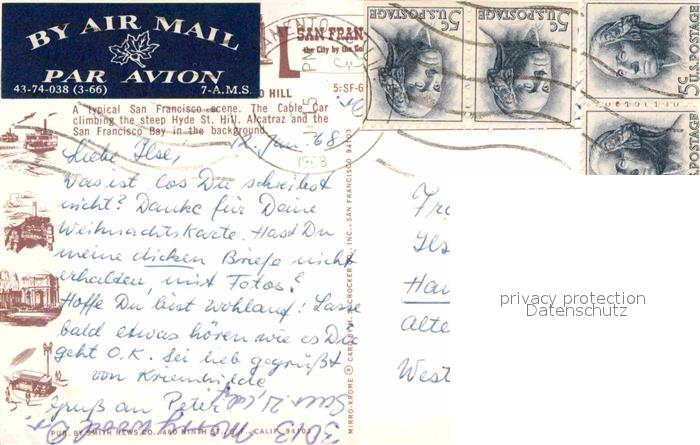 BY AIR MAIL
PAR AVION
43-74-038 (3-66) 7-A.M.S.
SAN FRAN
the City by the Go
HILL 5:SF-6
A typical San Francisco scene. The Cable Car
climbing the steep Hyde St. Hill. Alcatraz and the
San Francisco Bay in the background.
PM
1968
5c U.S. POSTAGE
5c U.S. POSTAGE
5c U.S. POSTAGE
U.S. POSTAGE
12. Jan. 68
Liebe Ilse,
Was ist los Du schreibst
nicht? Danke für Deine
Weihnachtskarte. Hast Du
meine dicken Briefe nicht
erhalten, mit Fotos?
Hoffe Du bist wohlauf! Lasse
bald etwas hören wie es Dir
geht O.K. Sei lieb gegrüßt
von Kriemhilde
Gruß an Peter
3013
MIRRO-KROME ® CARD BY H. S. CROCKER CO., INC., SAN FRANCISCO, CALIF. 94102
PUB. BY SMITH NEWS CO., 460 NINTH ST., S.F., CALIF. 94103
Fra
Ils
Han
Alte
West
privacy protection
Datenschutz